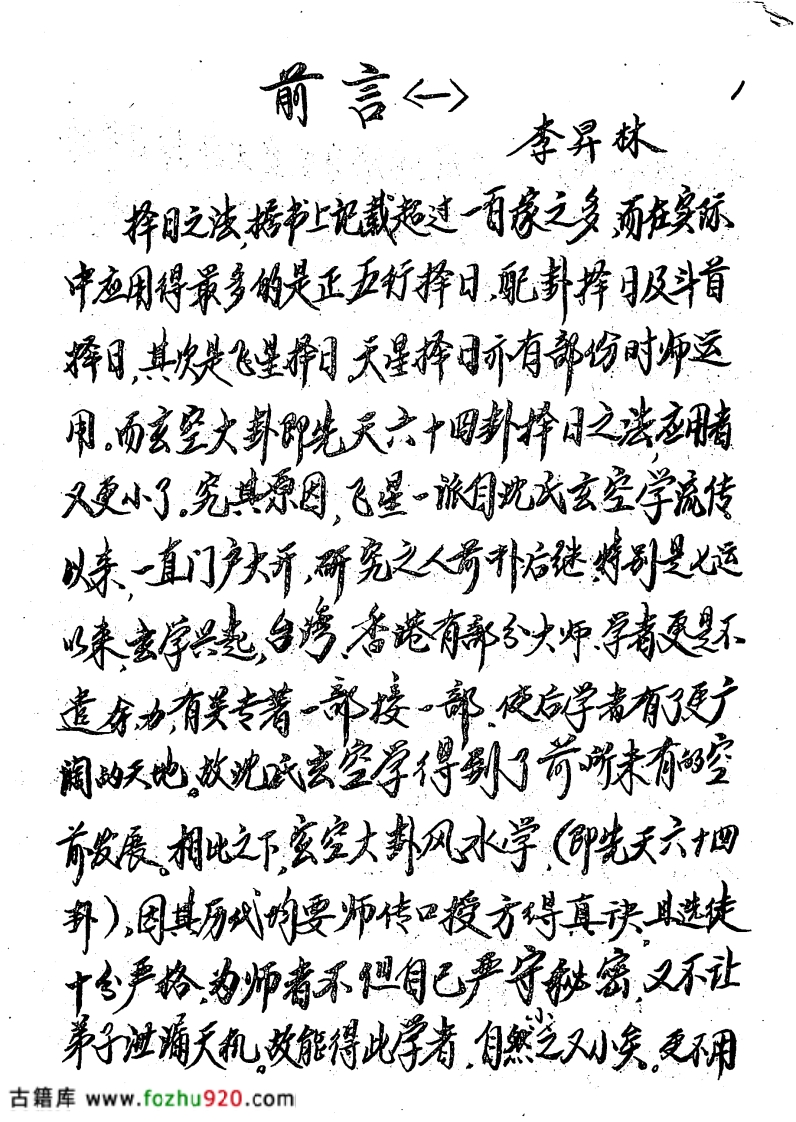 前言<一>
1
李昇林
择日之法,据书上记载超过一百家之多,而在实际
中应用得最多的是正五行择日,配卦择日及斗首
择日,其次是飞星择日,天星择日亦有部份时师运
用。而玄空大卦即先天六十四卦择日之法,应用者
又更小了。究其原因,飞星一派自沈氏玄空学流传
以来,一直门户大开,研究之人前扑后继,特别是七运
以来,玄学兴起,台湾、香港有部分大师、学者更是不
遗余力,有关专著一部接一部,使后学者有了更广
阔的天地。故沈氏玄空学得到了前所未有的空
前发展。相比之下,玄空大卦风水学,(即先天六十四
卦),因其历代均要师传口授方得真诀,且选徒
十分严格,为师者不但自己严守秘密,又不让
弟子泄漏天机。故能得此学者,自然小之又小矣。更不用
古籍库 www.fozhu920.com